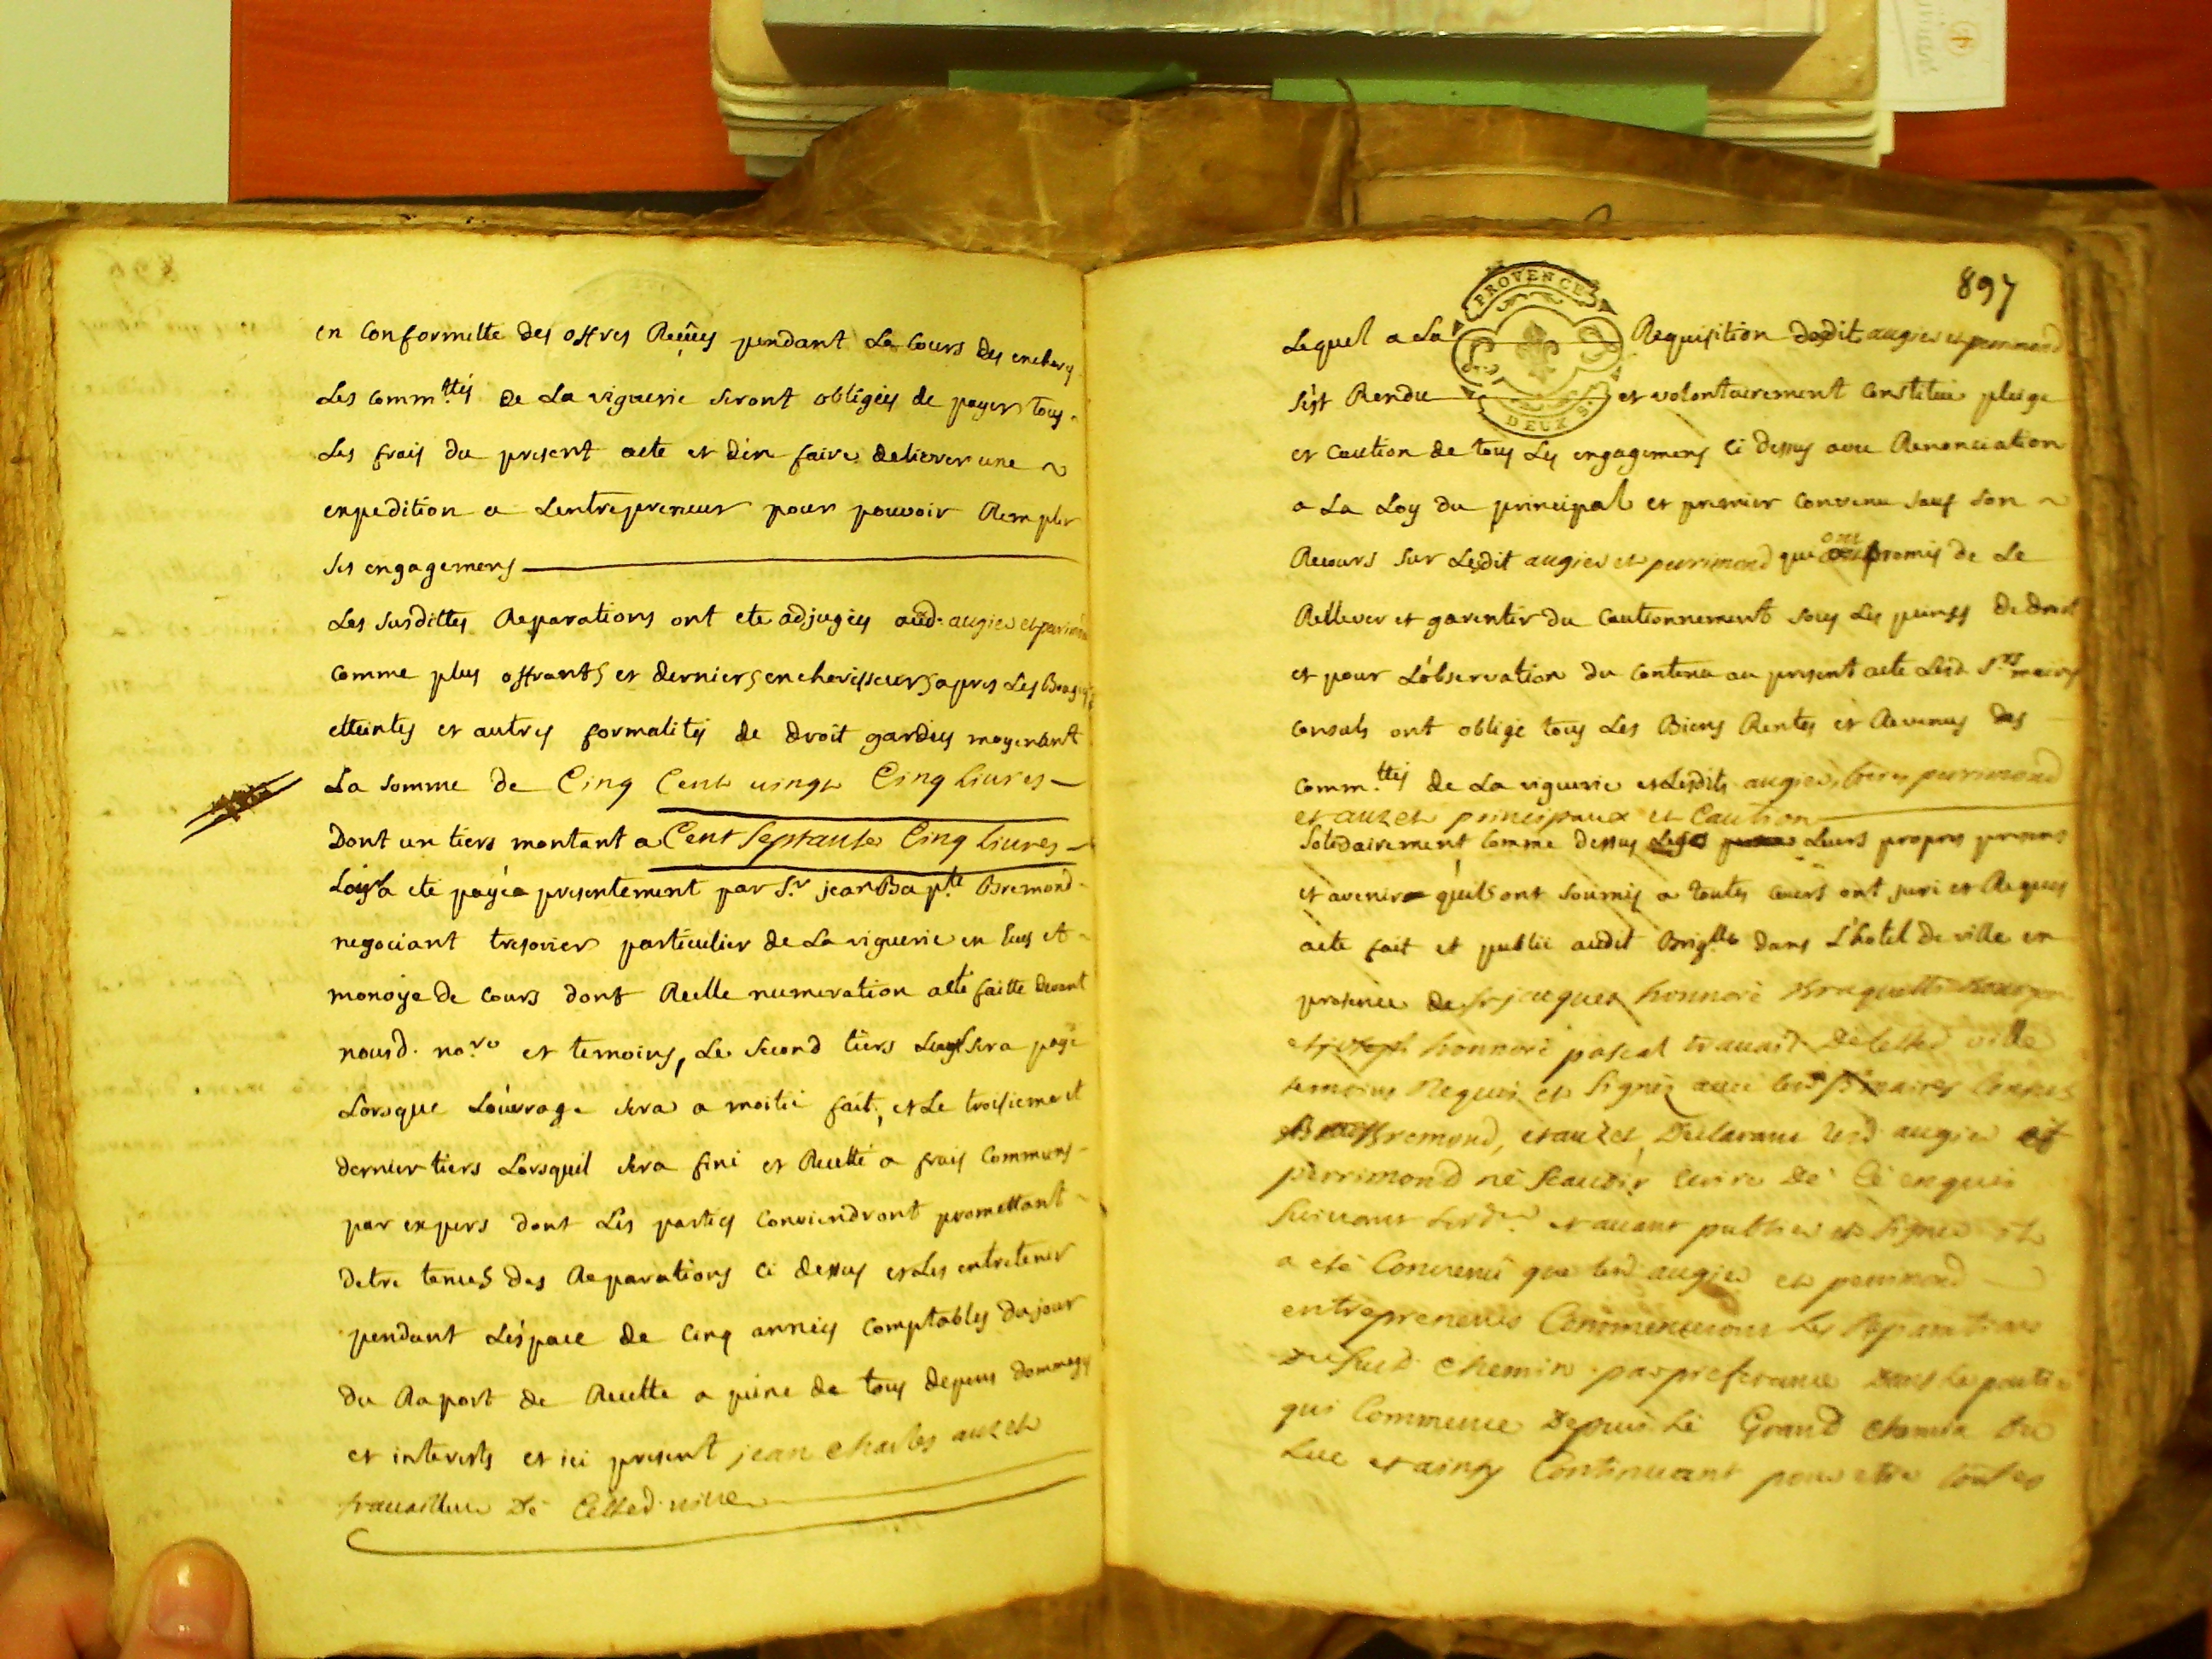 en Conformitte des offres Reçües pendant Le Cours des encheres
Les Comm.ttés de La viguerie seront obligées de payer tous
Les frais du present acte et d'en faire delivrer une
expedition a Lentrepreneur pour pouvoir Remplir
ses engagemens
Les susdittes Reparations ont ete adjugées aud. augier et perrimond
Comme plus offrants et derniers encherisseurs apres Les Bougies
etteintes et autres formalités de droit gardées moyenant
La somme de Cinq Cent vingt Cinq Livres
Dont un tiers montant a Cent septante Cinq Livres
a eté payéa presentement par S.r jean Bap.te Bremond
negociant tresorier particulier de La viguerie en Ecus et
monoye de Cours dont Reelle numeration a eté faitte devant
nousd. no.re et temoins, Le second tiers Luy sera payé
Lorsque L'ouvrage sera a moitié fait, et Le troisieme et
dernier tiers Lorsquil sera fini et Recetté a frais Communs
par expers dont Les parties Conviendront promettant
detre tenues des Reparations Ci dessus et Les entretenir
pendant L'espace de Cinq années Comptables du jour
du Raport de Recette a peine de tous depens dommages
et interests et ici present jean Charles auzet
travailleur De Cetted. ville
897
PROVENCE
DEUX S.
Lequel a La Requisition desdit augier et perrimond
s'est Rendu et volontairement Constitué pleige
et Caution de tous Les engagemens Ci dessus avec Renonciation
a La Loy du principal et premier Convenu sauf son
Recours sur Lesdit augier et perrimond qui ont promis de Le
Rellever et garentir du Cautionnement sous Les peines de droit
et pour L'observation du Contenu au present acte Lesd. S.rs maires
Consuls ont obligé tous Les Biens Rentes et Revenus des
Comm.ttés de La viguerie et Lesdits augier, perrimond
et auzet principaux et Caution
Solidairement Comme dessus Leurs propres presens
et avenir quils ont soumis a toutes Cours ont juré et Requis
acte fait et publié audit Brig.lle dans L'hotel de ville en
presence de Sr jacques honnoré Braquetti
et joseph honnoré pascal travail.r De Cetted. ville
temoins Requis et signés avec Lesd. S.rs maires Consuls
Bremond, et auzet, Declarant Lesd. augier et
perrimond ne scavoir Ecrire De Ce enquis
suivant Lord.ce et avant publier et signer il
a eté Convenu que Lesd. augier et perrimond
entrepreneurs Commenceront Les Reparations
Dusud. Chemin par preference Dans La partie
qui Commence Depuis Le Grand Chemin Du
Luc et ainsy Continuant pour etre toutes